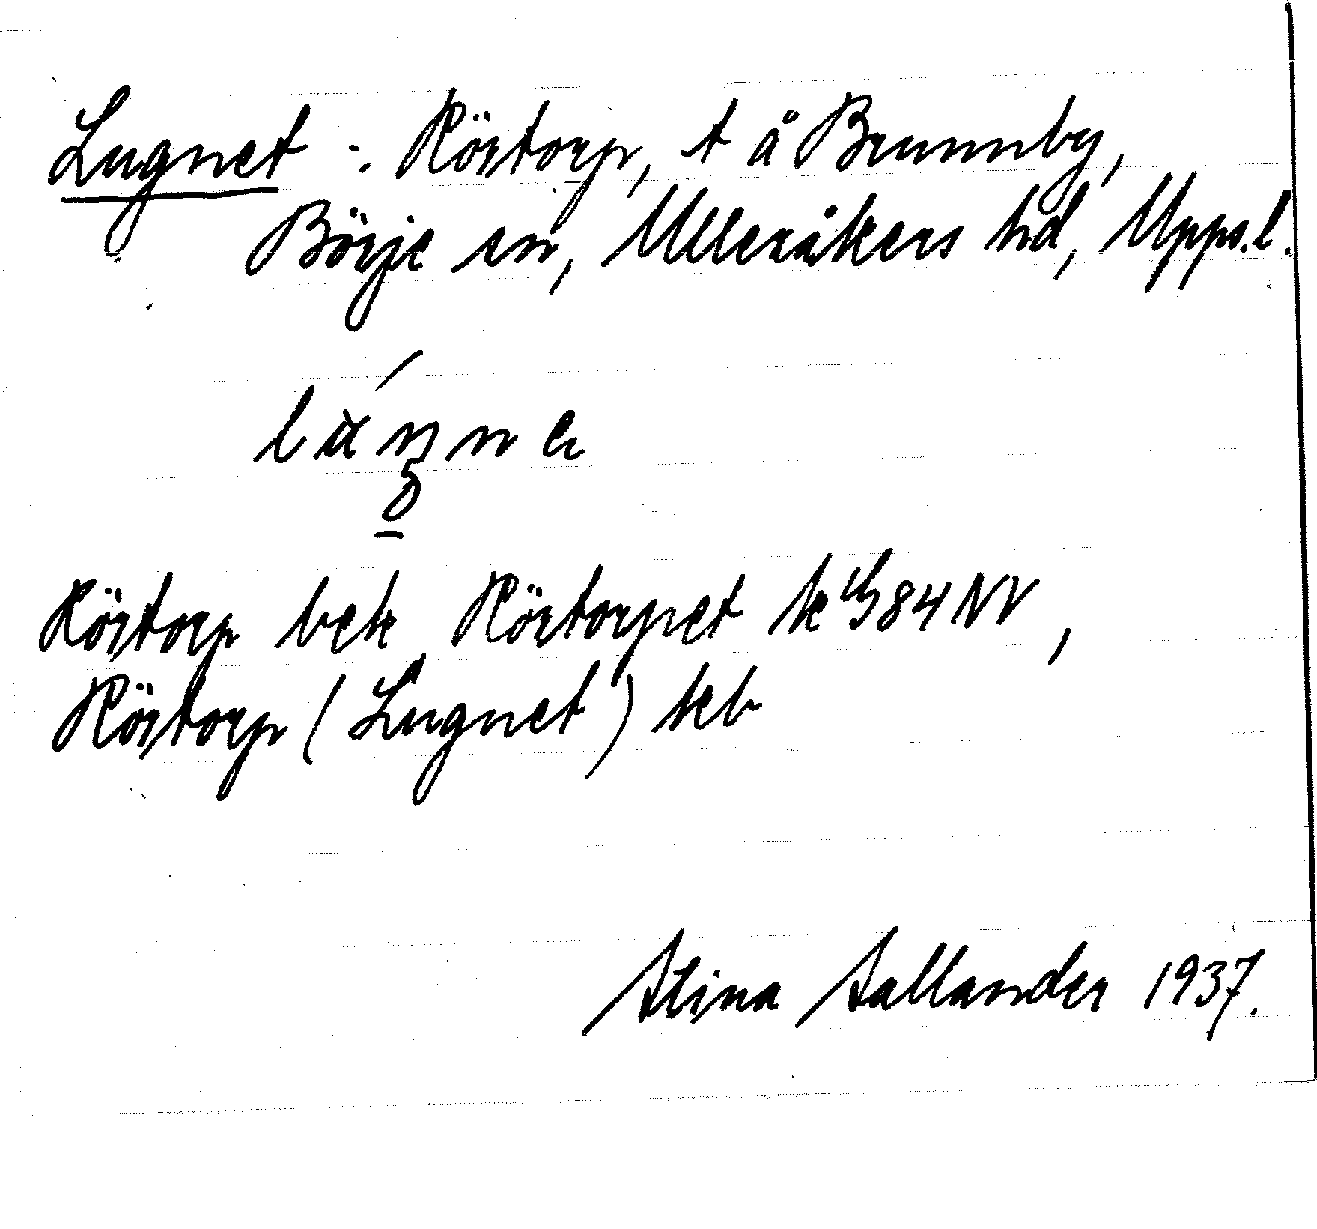 Lugnet -. Röstorp, t å Brunnby,
Börje sn, Ulleråkers hd, Upps.l.
Röstorp bek Röstorpet k 84 NV,
Röstorp (Lugnet) kb
Stina Sallander 1937.